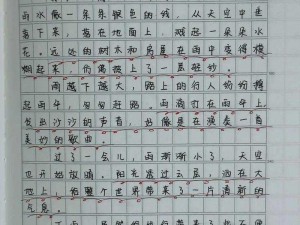 雨水像一条条银色的线，从天空中垂
落下来，落在地面上，溅起一朵朵水
花。远处的树木和房屋在雨中变得模
糊起来，仿佛披上了一层轻纱。
雨越下越大，路上的行人纷纷撑
起雨伞，匆匆赶路。雨滴打在雨伞上，
发出沙沙的声音，好像是在演奏一首
美妙的歌曲。
过了一会儿，雨渐渐小了，天空
也开始放晴。阳光透过云层，洒在大
地上，给整个世界带来了一片清新的
气息。